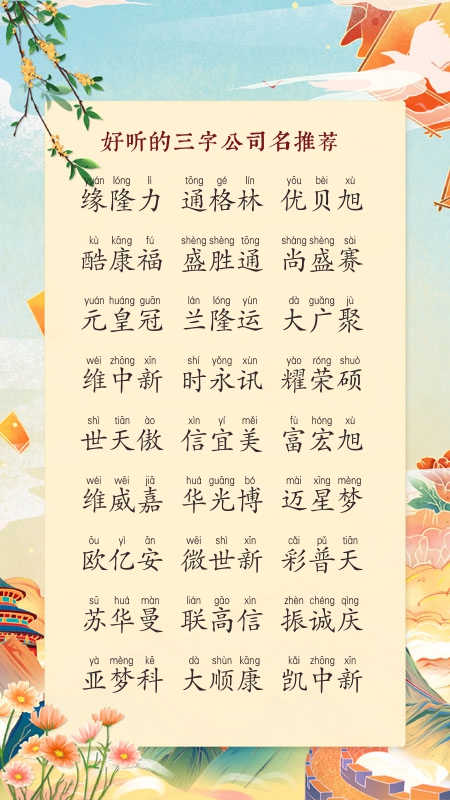 好听的三字公司名推荐
yuán lóng lì tōng gé lín yōu bèi xù
缘隆力 通格林 优贝旭
kù kāng fú shèng shèng tōng shàng shèng sài
酷康福 盛胜通 尚盛赛
yuán huáng guān lán lóng yùn dà guǎng jù
元皇冠 兰隆运 大广聚
wéi zhōng xīn shí yǒng xùn yào róng shuò
维中新 时永讯 耀荣硕
shì tiān ào xìn yí měi fù hóng xù
世天傲 信宜美 富宏旭
wéi wēi jiā huá guāng bó mài xīng mèng
维威嘉 华光博 迈星梦
ōu yì ān wēi shì xīn cǎi pǔ tiān
欧亿安 微世新 彩普天
sū huá màn lián gāo xìn zhèn chéng qìng
苏华曼 联高信 振诚庆
yà mèng kē dà shùn kāng kǎi zhōng xīn
亚梦科 大顺康 凯中新